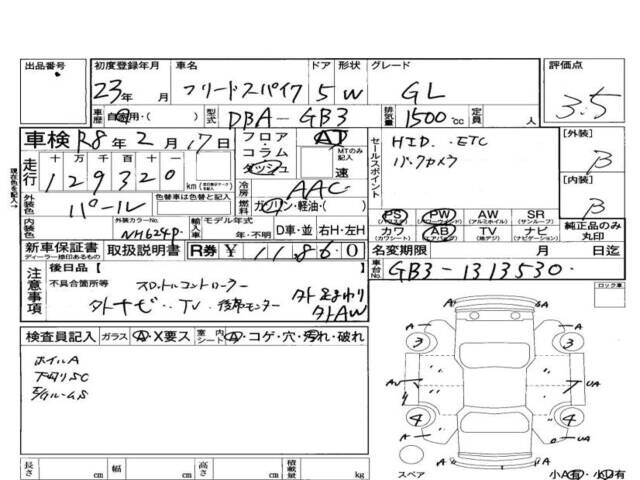 出品番号 初度登録年月 車名 ドア 形状 グレード 評価点
23年 月 フリードスパイク 5 W GL 3.5
車歴 自家用・( ) 型式 DBA-GB3 排気量 1500cc 定員 人
車検 R8年2月17日 フロア・コラム・ダッシュ AT MTのみ記入 速 セールスポイント HID. ETC 【外装】 B
バックカメラ
走行 十万千百十一 129320 km 冷房 AAC 【内装】 B
現在色を記入→ 外装色 パール 色替車は色替と記入 燃料 ガソリン・軽油・( )
PS (パワステ) PW (パワーウィンド) AW (アルミホイル) SR (サンルーフ)
内装色 外装カラーNo. NH624P 輸入車 モデル年式 年・不明 D車・並 右H・左H カワ (カワシート) AB (エアバッグ) TV (地デジ) ナビ (ナビゲーション) 純正品のみ丸印
新車保証書 ディーラー捺印あるもの 取扱説明書 R券 ¥ 11860 名変期限 月 日迄
注意事項 後日品 [ ] 車台No. GB3-1313530
不具合箇所等 スロットルコントローラー
外ナビ・TV 後席モニター 外足まわり
外AW
ロック車
検査員記入 ガラス A・X要ス 室内シート A・コゲ・穴・汚れ・破れ
ホイルA
下廻りSC
A A
3 3
4 4
A A
UA
スペア 小A有・小U有
長さ cm 幅 cm 高さ cm 積載量 kg